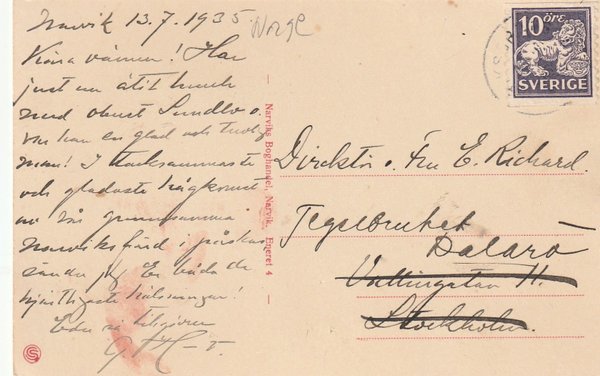 Narvik 13.7.1935
Norge
Kära vänner! Har
just nu ätit lunch
med obust Sundlo o.
var han en glad och trevlig
man! I tacksammaste
och gladaste hågkomst
av vår gemensamma
Narviksfärd i påskas
sänder jag Er båda de
hjärtligaste hälsningar!
Eder
tillgivne
Narviks Boghandel, Narvik. Eneret 4
10 ÖRE
SVERIGE
Direktör o. Fru E. Richard.
Tegelbruket
Dalarö
Vallingatan 11.
Stockholm.